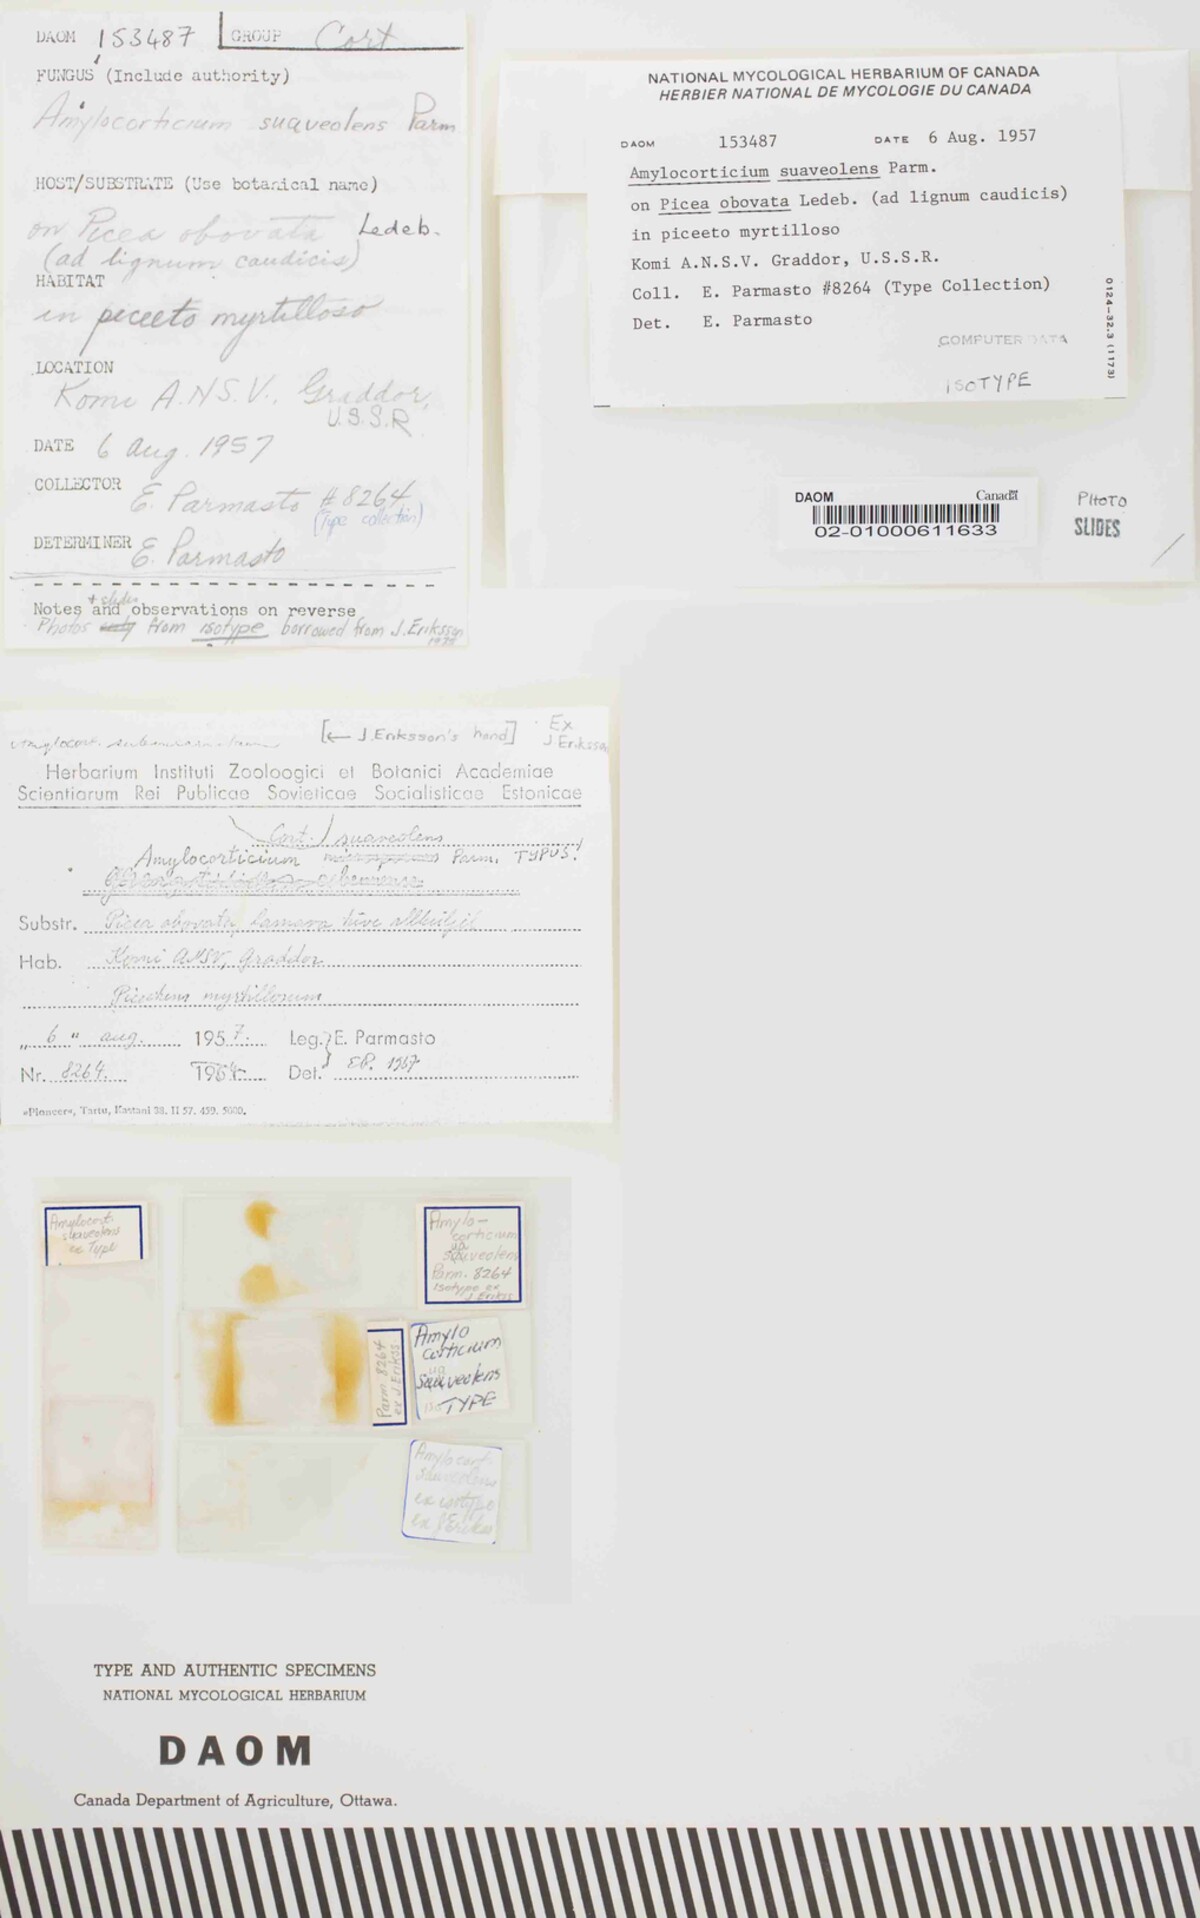 DAOM 153487 GROUP Cort
FUNGUS (Include authority)
Amylocorticium suaveolens Parm
HOST/SUBSTRATE (Use botanical name)
on Picea obovata Ledeb.
(ad lignum caudicis)
HABITAT
in piceeto myrtilloso
LOCATION
Komi A.N.S.V., Graddor,
U.S.S.R.
DATE 6 Aug. 1957
COLLECTOR
E. Parmasto #8264
(Type collection)
DETERMINER E. Parmasto
+ slides
Notes and observations on reverse
Photos only from isotype borrowed from J. Eriksson
NATIONAL MYCOLOGICAL HERBARIUM OF CANADA
HERBIER NATIONAL DE MYCOLOGIE DU CANADA
DAOM 153487 DATE 6 Aug. 1957
Amylocorticium suaveolens Parm.
on Picea obovata Ledeb. (ad lignum caudicis)
in piceeto myrtilloso
Komi A.N.S.V. Graddor, U.S.S.R.
Coll. E. Parmasto #8264 (Type Collection)
Det. E. Parmasto
COMPUTER DATA
ISOTYPE
0124-32.3 (1173)
DAOM Canada
02-01000611633
PHOTO
SLIDES
[← J. Eriksson's hand] Ex
J. Eriksson
Herbarium Instituti Zooloogici et Botanici Academiae
Scientiarum Rei Publicae Sovieticae Socialisticae Estonicae
Cort. suaveolens
Amylocorticium Parm. TYPUS!
Substr. Picea obovata, lamava tüve allküljel
Hab. Komi ANSV, Graddor
Piceetum myrtillosum
„ 6 " aug. 1957. Leg. E. Parmasto
Nr. 8264. 1964 Det. EP. 1967
»Pioneer«, Tartu, Kastani 38. II 57. 459. 5000.
Amylocort.
suaveolens
ex Type
Amylo-
corticium
suaveolens
Parm. 8264
isotype ex
J. Erikss
Parm 8264
ex J. Erikss.
Amylo
corticium
suaveolens
iso TYPE
Amylocort.
suaveolens
ex isotype
ex J Erikss
TYPE AND AUTHENTIC SPECIMENS
NATIONAL MYCOLOGICAL HERBARIUM
DAOM
Canada Department of Agriculture, Ottawa.